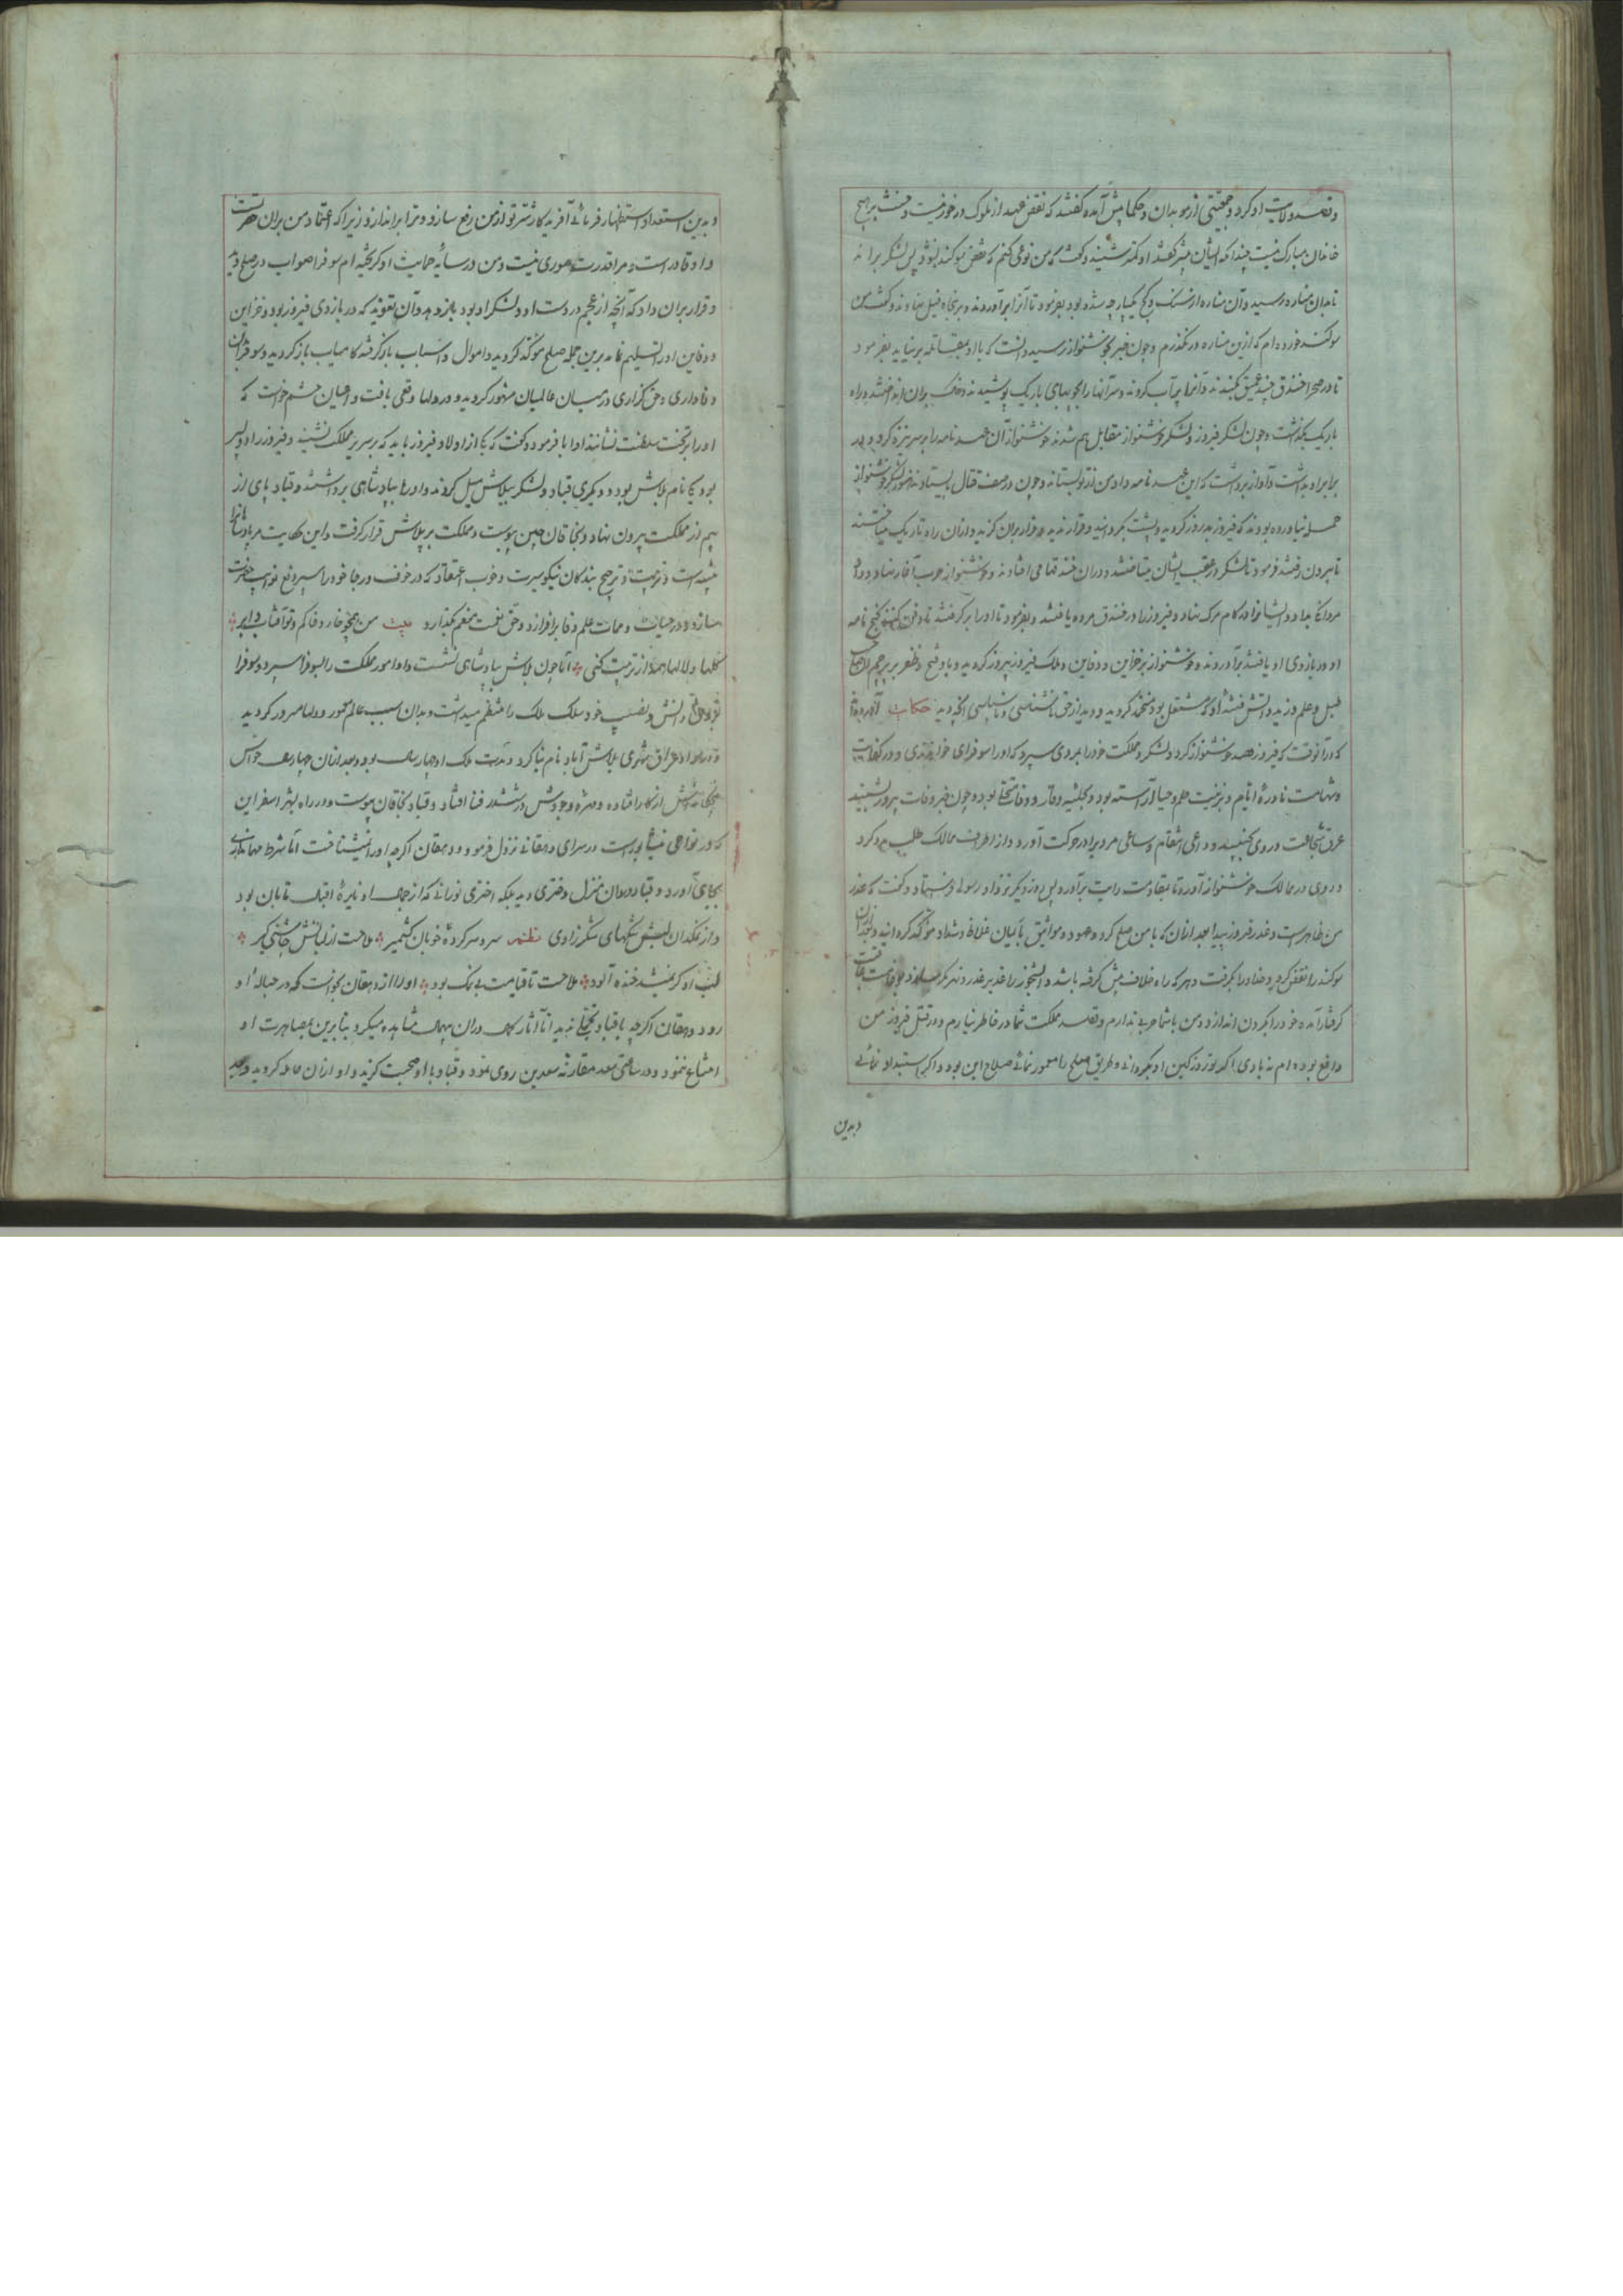 و قصد ولایت او کرد و جمعیتی از موبدان و حکما پیش آمده گفتند که نقض عهد از ملوک در خور نیست و حنث بر هیچ
خاندان مبارک نیست چندانکه ایشان بیشتر گفتند او کمتر شنید و گفت که من نوعی کنم که نقض سوگند نبود پس لشکر براند
تا بدان مناره رسید و آن مناره از سنگ و گچ یکپارچه شده بود بفرمود تا آنرا برآوردند و بر پنجاه فیل نهادند و گفت من
سوگند خورده ام که ازین مناره در نگذرم و چون خبر بخوشنواز رسید دانست که با او بمقاتله برنیاید بفرمود
تا در صحرا خندق چند عمیق بکندند و آنها پر آب کردند و سر آنها را بچوبهای باریک پوشیدند و خاک بران انداختند و راه
باریک بگذاشت و چون لشکر فیروز و لشکر خوشنواز مقابل هم شدند خوشنواز آن عهدنامه را بر سر نیزه کرد و در
برابر او بداشت و آواز برداشت که این عهدنامه داد من از تو بستاند و چون در صف قتال بایستادند هنوز لشکر خوشنواز
حمله نیاورده بودند که فیروز بدروز گردید و پشت بگردانید و قرار ندید و فرار بران گزید و ازان راه تاریک میتاختند
تا بیرون رفتند فرمود تا لشکر در عقب ایشان میتاختند و دران خندقها می افتادند و خوشنواز حرب آغاز نهاد و داد
مردانگی بداد و ایشانرا در کام مرگ نهاد و فیروز را در خندق مرده یافتند و بفرمود تا او را برگرفتند تا دفن کنند گنج نامه
او در بازوی او یافتند برآوردند و خوشنواز بر خزاین و دفاین و ملک فیروز پیروز گردید و باد فتح و ظفر بر پرچم
حکایت
که در آنوقت که فیروز قصد خوشنواز کرد و لشکر و مملکت خود را بمردی سپرد که او را سوفرای خواندندی و در کفایت
و شهامت نادرهٔ ایام و بزینت حلم و حیا آراسته بود و بحلیه وقار و وفا متحلی بود و چون خبر وفات پیروز بشنید
عرق شجاعت در وی بجنبید و داعی انتقام و ساعی مردی او در حرکت آورد و از اطراف ممالک طلب مرد کرد
و روی در ممالک خوشنواز آورد تا بمقاومت رایت برآورد پس روز دیگر نزد او رسولی فرستاد و گفت که عذر
من ظاهرست و غدر فیروز پیدا بعد ازان که با من صلح کرده و عهود و مواثیق بایمان غلاظ و شداد موکد گردانید و بعد ازان
سوگند را نقض کرد و خدا او را بگرفت و هر که راه خلاف پیش گرفته باشد
گرفتار آمد و خود را بگردن اندازد و من با شما حربی ندارم و قصد مملکت شما در خاطر نیارم و در قتل فیروز من
دافع بوده ام نه بادی اگر تو روز کین او بگردانی و طریق صلح را معمور نمائی صلاح این بود و اگر استبداد نمائی
و بدین
و بدین استعداد استظهار فرمائی آفریدگار شر تو از من رفع سازد و ترا براندازد زیرا که اعتماد من بران حضرتست
و او قادر است و مرا قدرت موری نیست و من در سایهٔ حمایت او گریخته ام سوفرا صواب در صلح دید
و قرار بران داد که آنچه از عجم در دست او و لشکر او بود باز دهد و آن تعویذ که در بازوی فیروز بود و خزاین
و دفاین او را تسلیم نماید برین جمله صلح موکد گردید و اموال و اسباب باز گرفته کامیاب باز گردید و سوفرا بدان
وفاداری و حق گزاری در میان عالمیان مشهور گردید و در دلها وقعی یافت و اعیان حشم خواست که
او را بر تخت سلطنت نشانند او ابا فرمود و گفت که یکی از اولاد فیروز باید که بر سریر مملکت نشیند و فیروز را دو پسر
بود یکی نام بلاش بود و دیگری قباد و لشکر ببلاش میل کردند و او را بپادشاهی برداشتند و قباد پای از
بیم از مملکت بیرون نهاد و بخاقان چین پیوست و مملکت بر بلاش قرار گرفت و این حکایت مر پادشاهانرا
تنبیه است و تربیت و ترجیح بندگان نیکو سیرت و خوب اعتقاد که در خوف و رجا خود را سپر
سازد و در حیات و ممات علم وفا برافرازد و حق نعمت منعم بگذارد بیت من همچو خار و خاکم و تو آفتاب و ابر
گلها و لالها دهم از تربیت کنی اما چون بلاش بپادشاهی نشست و امور مملکت را بسوفرا سپرد و سوفرا
دانش و نصیب خود سلک ملک را منتظم میداشت و بدان سبب عالم معمور و دلها مسرور گردید
و در سواد عراق شهری بلاش آباد نام بنا کرد و مدت ملک او چهار سال بود و بعد ازان چهار سال حواس
پنجگانه اش از کار افتاده و مهرهٔ وجودش در ششدر فنا افتاد و قباد بخاقان پیوست و در راه بشهر اسفراین
که در نواحی نیشابورست در سرای دهقانی نزول فرمود و دهقان اگرچه او را نشناخت اما شرط مهمانداری
بجای آورد و قباد دران منزل دختری دید بلکه اختری نورانی که از جمال او نایرهٔ اقبال تابان بود
و از نمکدان لبش تنگهای شکر زادی نظم سر و سرکردهٔ خوبان کشمیر ملاحت از لبانش چاشنی گیر
لب او گر نمیشد خنده آلود ملاحت تا قیامت بی نمک بود او را از دهقان بخواست که در حبالهٔ او
رود دهقان اگرچه با قباد تجملی ندید اما آثار کمال دران جمال مشاهده میکرد بنابرین بمصاهرت او
امتناع ننمود و در ساعتی سعد مقارنه سعدین روی نمود و قباد با او صحبت گزید و او ازان حامله گردید و بعد